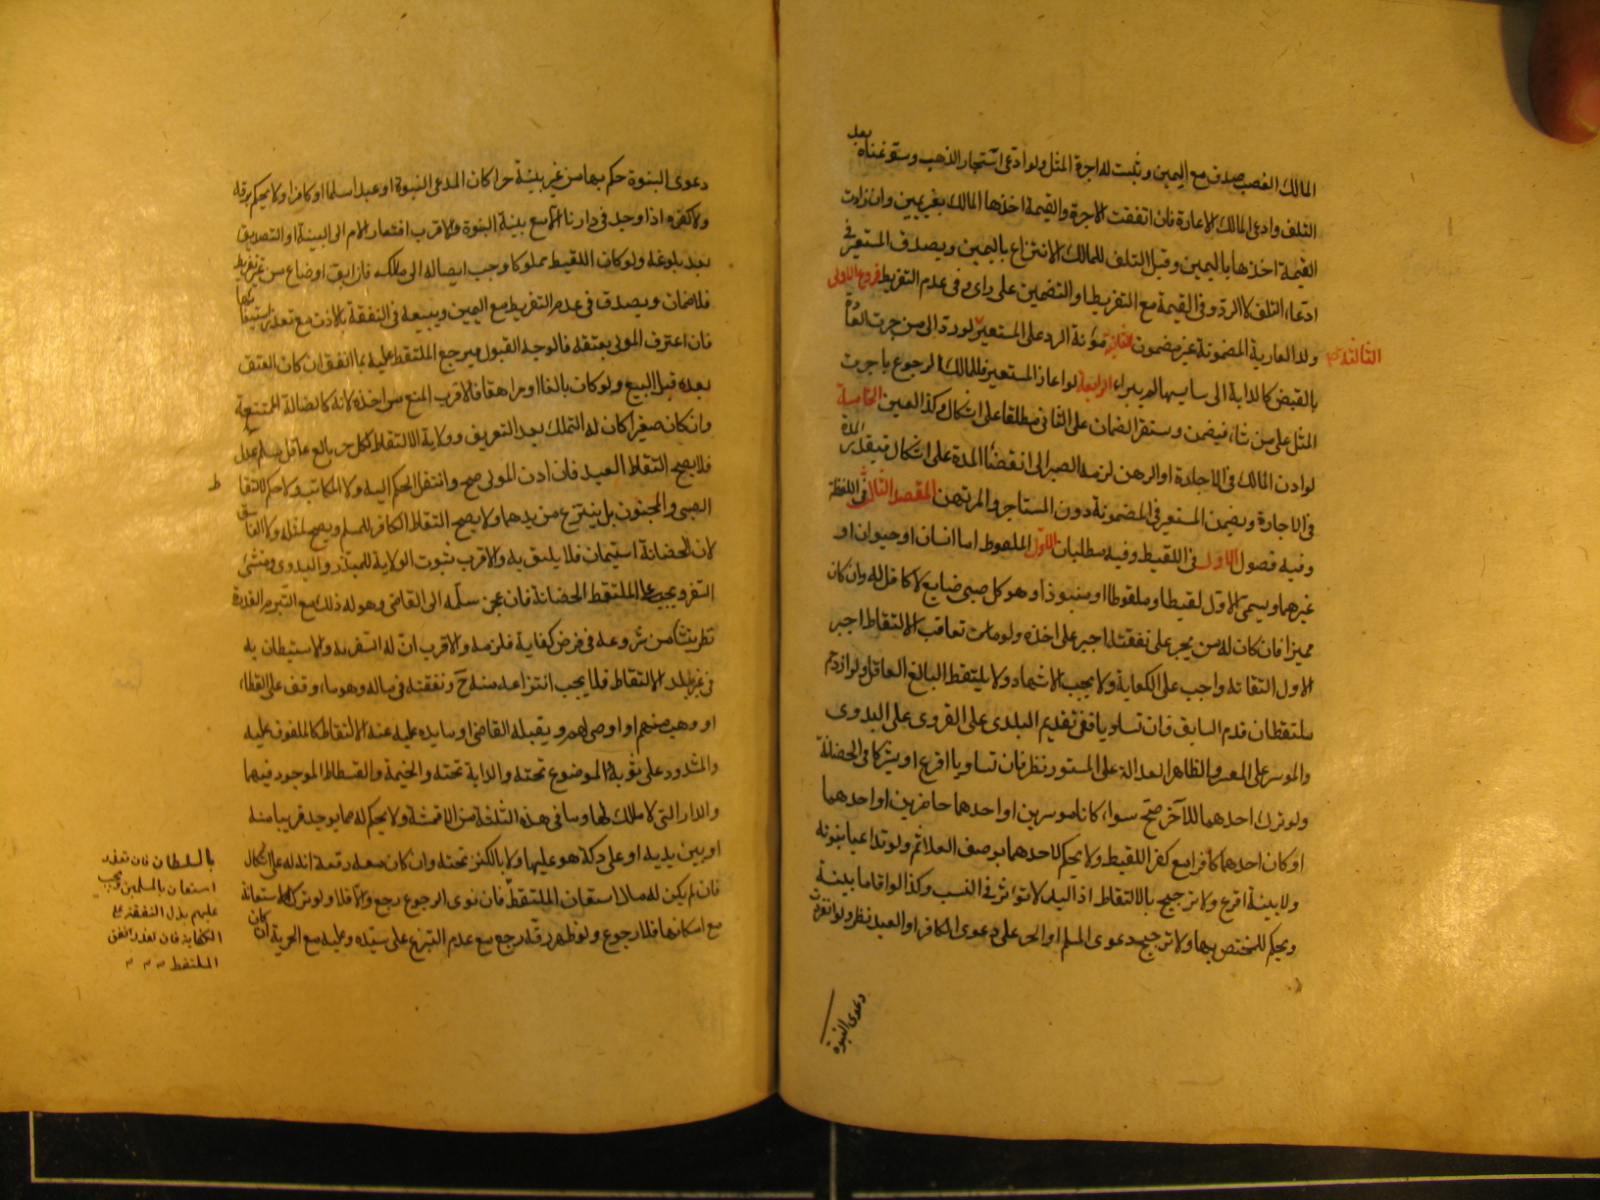 المالك الغصب صدق مع اليمين وثبت له اجرة المثل ولو ادعى استيجار الذهب وسوّغناه بعد
التلف وادعى المالك الاعارة فان اتفقت الاجرة والقيمة اخذها المالك بغير يمين وان زادت
القيمة اخذها باليمين وقبل التلف للمالك الانتزاع باليمين ويصدق المستعير في
ادعاء التلف لا الرد وفي القيمة مع التفريط او التضمين على راى وفي عدم التفريط فروع الاولى
ولد العارية المضمونة غير مضمون الثانية مؤنة الرد على المستعير لو رده الى من جرت العادة
الثالثة
بالقبض كالدابة الى سايسها لم يبراء الرابعة لو اعار المستعير فللمالك الرجوع باجرة
المثل على من شاء فيضمن وستقر الضمان على الثانى مطلقا على اشكال وكذا العين الخامسة
لو اذن المالك في الاجارة او الرهن لزمه الصبر الى انقضاء المدة على اشكال
في الاجارة ويضمن المستعير في المضمونة دون المستاجر والمرتهن المقصد الثالث في اللقطة
وفيه فصول الاول في اللقيط وفيه مطلبان الاول الملقوط اما انسان او حيوان او
غيرهما ويسمى الاول لقيطا وملقوطا ومنبوذا وهو كل صبى ضايع لا كافل له وان كان
مميزا فان كان له من يجبر على نفقته اجبر على اخذه ولو تعاقب الالتقاط اجبر
الاول التقاته واجب على الكفاية ولا يجب الاشهاد ولا يلتقط البالغ العاقل ولو ازدحم
ملتقطان قدم السابق فان تساويا ففى تقديم البلدى على القروى على البدوى
والموسر على المعسر والظاهر العدالة على المستور نظر فان تساويا اقرع او يشتركا في الحضانة
ولو ترك احدهما للآخر صح سواء كانا موسرين او احدهما حاضرين او احدهما
او كان احدهما كافرا مع كفر اللقيط ولا يحكم لاحدهما بوصف العلائم ولو تداعيا بنوته
ولا بينة اقرع ولا ترجيح بالالتقاط اذ اليد لا تؤثر في النسب وكذا لو اقاما بينة
ويحكم للمختص بها ولا ترجيح دعوى المسلم او الحر على دعوى الكافر او العبد نظر ولو انفردت
دعوى البنوة
دعوى البنوة حكم بها من غير بينة حرا كان المدعى للبنوة او عبدا مسلما او كافرا ولا يحكم برقه
ولا كفره اذا وجد في دارنا الا مع بينة البنوة والاقرب افتقار الام الى البينة او التصديق
بعد بلوغه ولو كان اللقيط مملوكا وجب ايصاله الى مالكه فان ابق او ضاع من غير تفريط
فلا ضمان ويصدق في عدم التفريط مع اليمين ويبيعه في النفقة بالاذن مع تعذر استيفائها
فان اعترف المولى بعتقه فالوجه القبول فيرجع الملتقط عليه بما انفق ان كان العتق
بعده قبل البيع ولو كان بالغا او مراهقا فالاقرب المنع من اخذه لانه كالضالة الممتنعة
وان كان صغيرا كان له التملك بعد التعريف وولاية الالتقاط لكل حر بالغ عاقل مسلم عدل
فلا يصح التقاط العبد فان اذن المولى صح وانتقل الحكم اليه ولا المكاتب ولا حكم لالتقاط
الصبى والمجنون بل ينتزع من يدهما ولا يصح التقاط الكافر للمسلم ويصح لمثله ولا الفاسق
لان الحضانة استيمان فلا يليق به والاقرب ثبوت الولاية للمبذر والبدوى ومنشئ
السفر ويجب على الملتقط الحضانة فان عجز سلمه الى القاضى وهو له ذلك مع التبرم القدرة
نظر ينشا من شروعه في فرض كفاية فلزمه والاقرب ان له السفر به والاستيطان به
في غير بلد الالتقاط فلا يجب انتزاعه منه ح ونفقته في ماله وهو ما وقف على اللقطاء
او وهب منهم او اوصى لهم ويقبله القاضى او ما يده عليه عند الالتقاط كالملفوف عليه
والمشدود على ثوبه والموضوع تحته والدابة تحته والخيمة والفسطاط الموجود فيهما
والدار التى لا مالك لها وما في هذه الثلثة من الاقمشة ولا يحكم له بما يوجد قريبا منه
او بين يديه او على دكة هو عليها ولا بالكنز تحته وان كان معه رقعة انه له على اشكال
فان لم يكن له مال استعان الملتقط فان نوى الرجوع رجع والا فلا ولو ترك الاستعانة
مع امكانها فلا رجوع ولو ظهر رقه رجع مع عدم التبرع على سيده وعليه مع الحرية ان كان
بالسلطان فان تعذر
استعان بالمسلمين ويجب
عليهم بذل النفقة على
الكفاية فان تعذر انفق
الملتقط